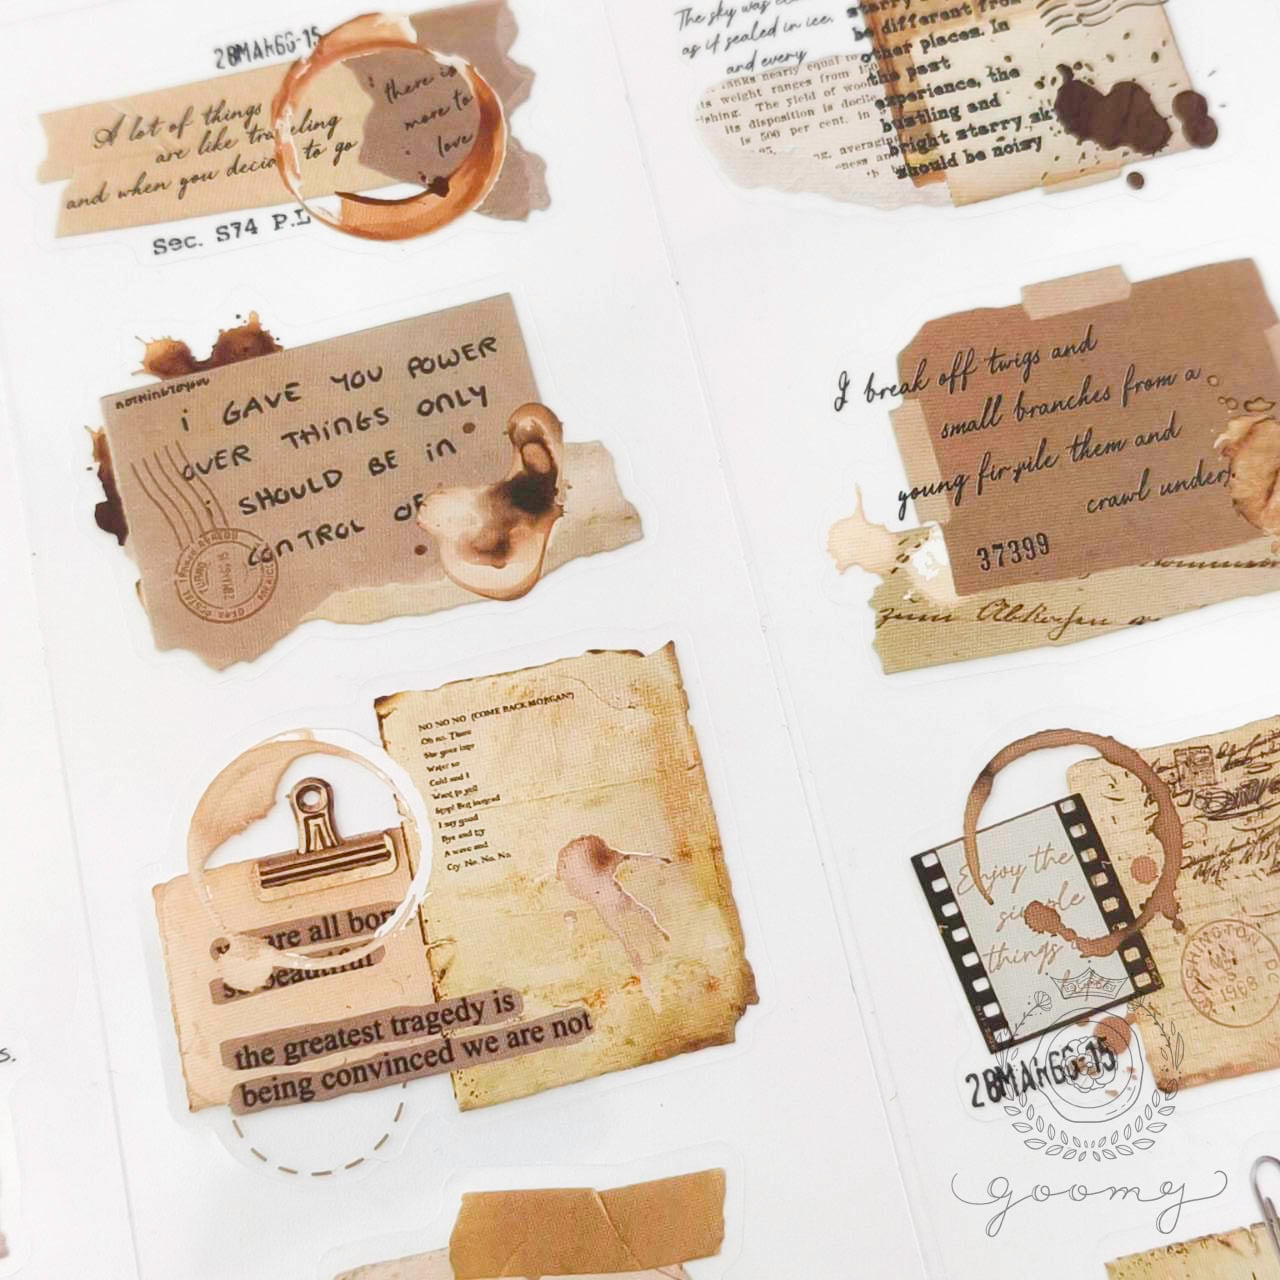 28MAR66-15
A lot of things
are like traveling
and when you decide to go
there is
more to
love
Sec. S74 P.L
The sky was
as if sealed in ice.
and every
nearly equal to
weight ranges from 150
The yield of wool
its disposition is docile
is 500 per cent. In
starry
be different from
other places. In
the past
experience, the
bustling and
bright starry sk
should be noisy
nothingtoyou
i GAVE YOU POWER
OVER THINGS ONLY
SHOULD BE in
CONTROL OF
28MAR66-15
I break off twigs and
small branches from a
young fir, pile them and
crawl under.
37399
zum
NO NO NO (COME BACK MORGAN?)
Oh no. There
She goes into
Water so
Cold and I
Want to yell
Stop! But instead
I say good
Bye and try
A wave and
Cry No. No. No.
are all born
so beautiful
the greatest tragedy is
being convinced we are not
Enjoy the
simple
things
WASHINGTON D
1968
28MAR66-15
goomg
s.